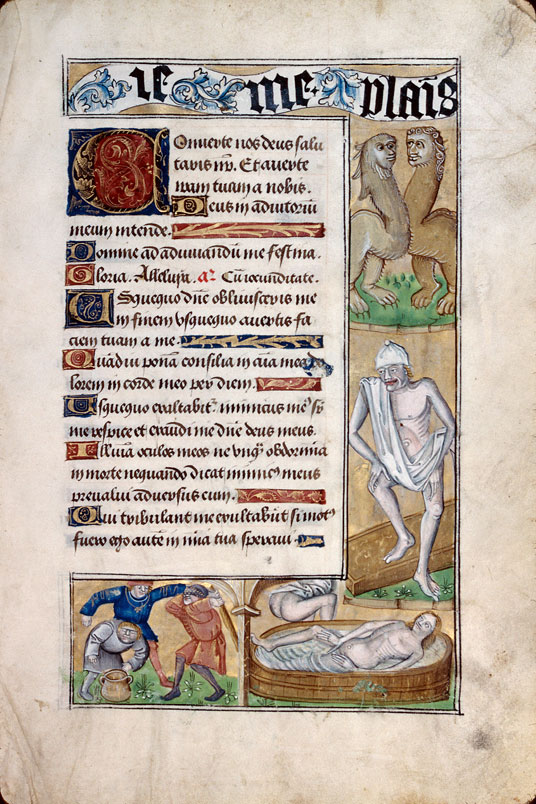 ie me plaīs
Converte nos deus salu
taris nr̄. Et averte
iram tuam a nobis.
Deus in adiutoriū
meum intende.
Domine ad adiuvandū me festina.
Gloria. Alleluya. aꝛ Cū iocunditate.
Usquequo dn̄e oblivisceris me
in finem usquequo avertis fa
ciem tuam a me.
Quādiu ponā consilia in aīa mea do
lorem in corde meo per diem.
Usquequo exultabit̄ inimicus me⁹ sr̄
me respice et exaudi me dn̄e deus meus.
Illuīa oculos meos ne unq̄ obdormiā
in morte nequando dicat inimic⁹ meus
prevalui adversus eum.
Qui tribulant me exultabūt si mot⁹
fuero ego autē in mīa tua speravi